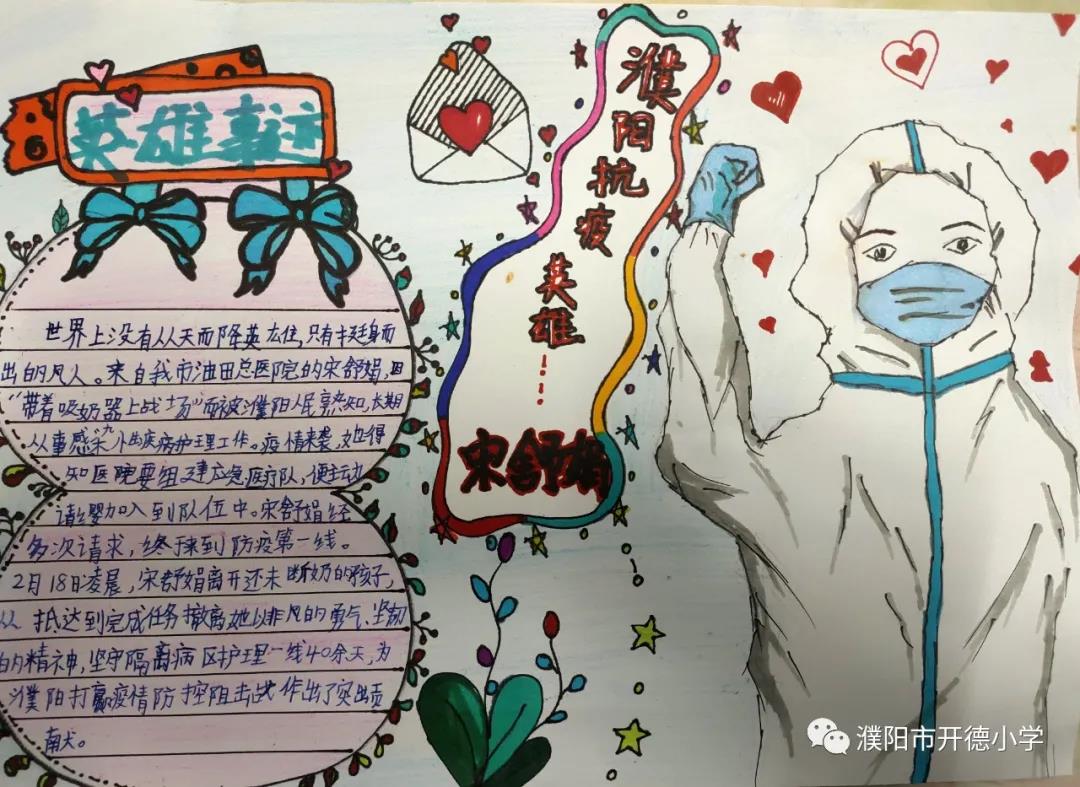 英雄事迹
世界上没有从天而降英雄,只有挺身而
出的凡人。来自我市油田总医院的宋舒娟,因
“带着吸奶器上战场”而被濮阳人民熟知,长期
从事感染性疾病护理工作。疫情来袭,她得
知医院要组建应急医疗队,便主动
请缨加入到队伍中。宋舒娟经
多次请求,终于来到防疫第一线。
2月18日凌晨,宋舒娟离开还未断奶的孩子,
从抵达到完成任务撤离,她以非凡的勇气、坚韧
的精神,坚守隔离病区护理一线40余天,为
濮阳打赢疫情防控阻击战作出了突出贡
献。
濮阳抗疫英雄……
宋舒娟
濮阳市开德小学